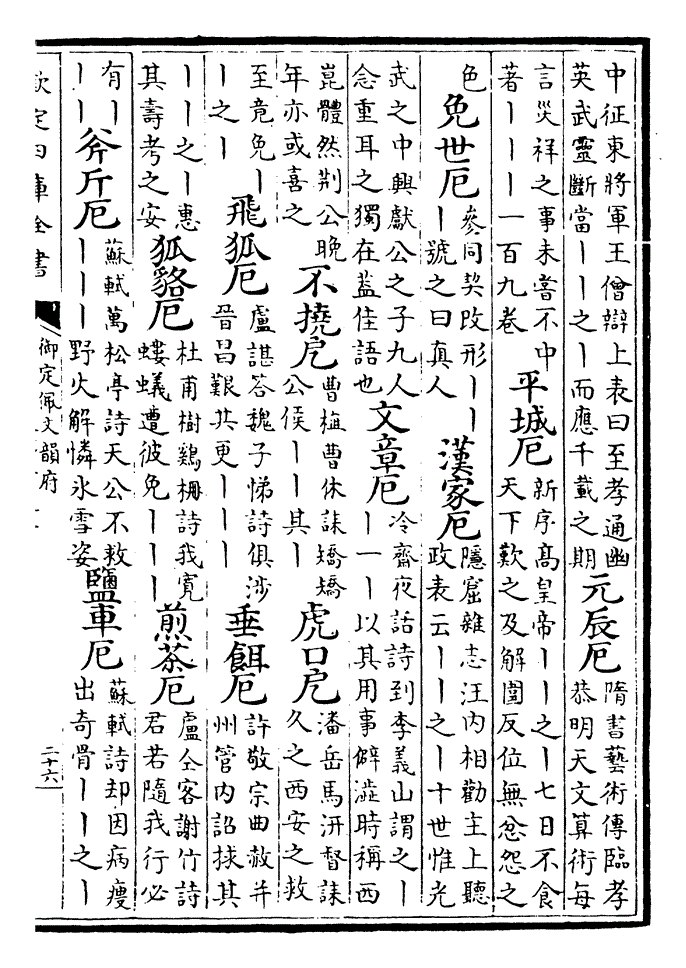 中征東將軍王僧辯上表曰至孝通幽
英武靈斷當丨丨之丨而應千載之期
元辰厄
隋書藝術傳臨孝
恭明天文算術每
言災祥之事未嘗不中
著丨丨丨一百九卷
平城厄
新序高皇帝丨丨之丨七日不食
天下歎之及解圍反位無忿怨之
色
免世厄
參同契改形丨丨
丨號之曰真人
漢家厄
隱窟雜志汪內相勸主上聽
政表云丨丨之丨十世惟光
武之中興獻公之子九人
念重耳之獨在蓋佳語也
文章厄
冷齋夜話詩到李義山謂之丨
丨一丨以其用事僻澁時稱西
崑體然荆公晚
年亦或喜之
不撓厄
曹植曹休誄矯矯
公侯丨丨其丨
虎口厄
潘岳馬汧督誄
久之西安之救
至竟免丨
丨之丨
飛狐厄
盧諶答魏子悌詩俱涉
晉昌艱共更丨丨丨
垂餌厄
許敬宗曲赦并
州管內詔拯其
丨丨之丨惠
其壽考之安
狐貉厄
杜甫樹鷄栅詩我寛
螻蟻遭彼免丨丨丨
煎茶厄
盧仝客謝竹詩
君若隨我行必
有丨
丨丨
斧斤厄
蘇軾萬松亭詩天公不救
丨丨丨野火解憐氷雪姿
鹽車厄
蘇軾詩却因病瘦
出奇骨丨丨之丨
欽定四庫全書
御定佩文韻府
二十六